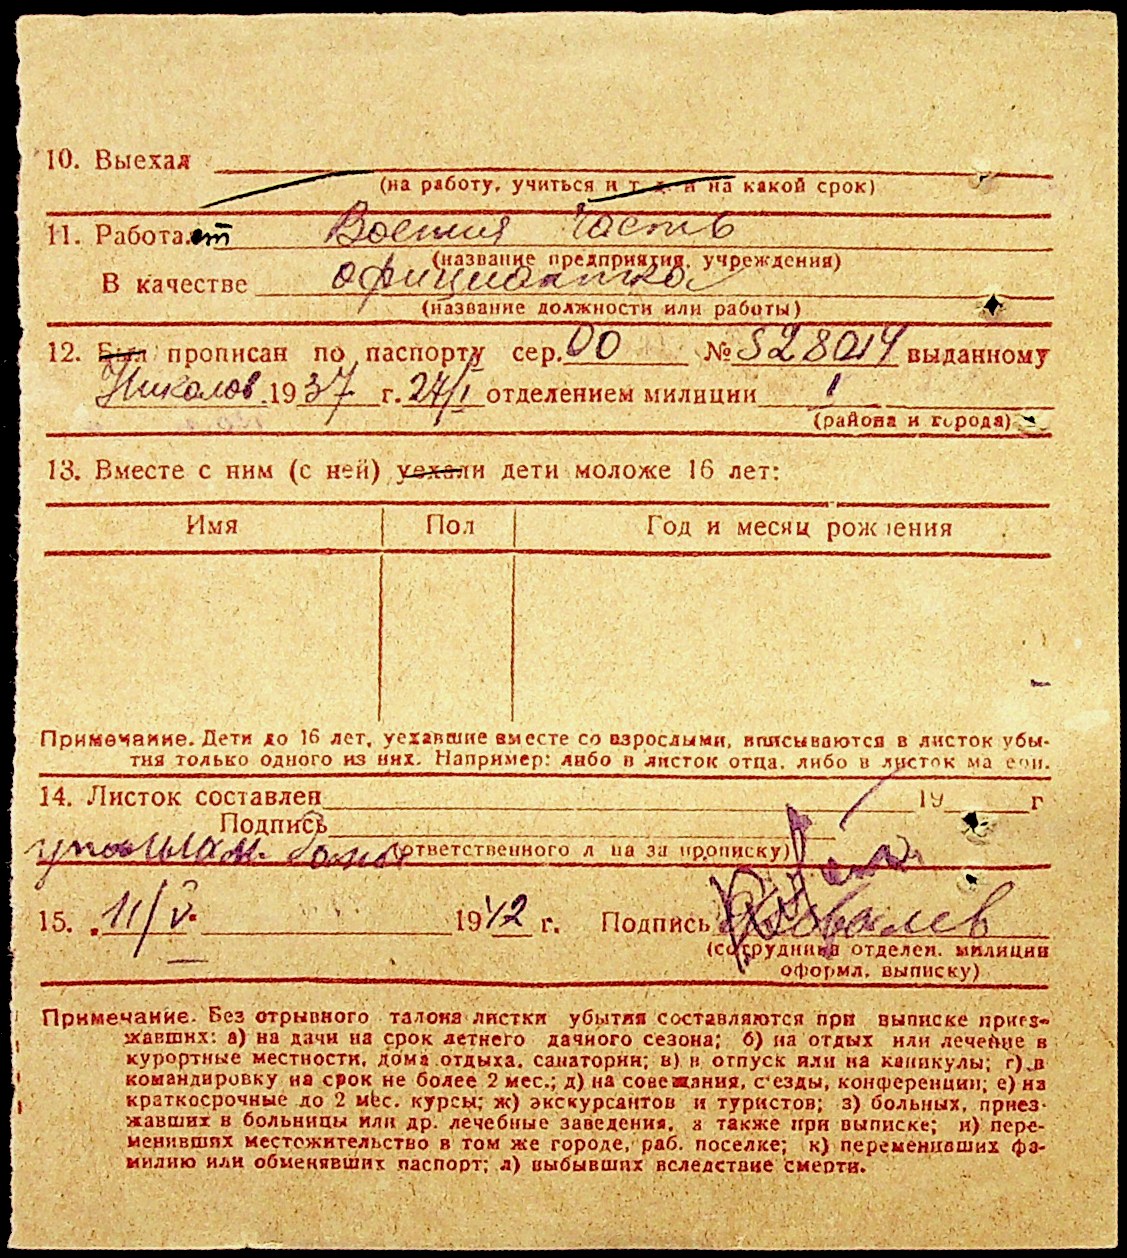 10. Выехал
(на работу, учиться и т. д. и на какой срок)
11. Работает Воення часть
(название предприятия, учреждения)
В качестве официантка
(название должности или работы)
12. Был прописан по паспорту сер. 00 № 528014 выданному
Николов. 1937 г. 24/I отделением милиции 1
(района и города)
13. Вместе с ним (с ней) уехали дети моложе 16 лет:
Имя Пол Год и месяц рождения
Примечание. Дети до 16 лет, уехавшие вместе со взрослыми, вписываются в листок убы-
тия только одного из них. Например: либо в листок отца, либо в листок ма ери.
14. Листок составлен 19 г
Подпись
(ответственного л ца за прописку)
15. 11/V. 1942 г. Подпись Ковалев
(сотрудника отделен. милиции
оформл. выписку)
Примечание. Без отрывного талона листки убытия составляются при выписке приез-
жавших: а) на дачи на срок летнего дачного сезона; б) на отдых или лечение в
курортные местности, дома отдыха, санатории; в) в отпуск или на каникулы; г) в
командировку на срок не более 2 мес.; д) на совещания, с'езды, конференции; е) на
краткосрочные до 2 мес. курсы; ж) экскурсантов и туристов; з) больных, приез-
жавших в больницы или др. лечебные заведения, а также при выписке; и) пере-
менивших местожительство в том же городе, раб. поселке; к) переменивших фа-
милию или обменявших паспорт; л) выбывших вследствие смерти.